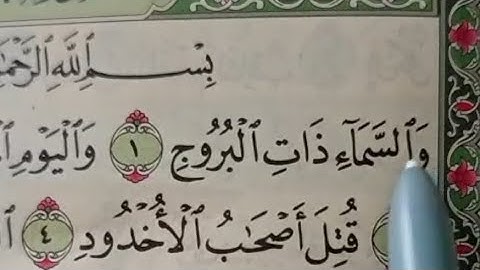 بِسْمِ ٱللَّهِ ٱلرَّحْمَٰ
وَٱلسَّمَآءِ ذَاتِ ٱلْبُرُوجِ ١ وَٱلْيَوْمِ ٱ
قُتِلَ أَصْحَٰبُ ٱلْأُخْدُودِ ٤ ٱ